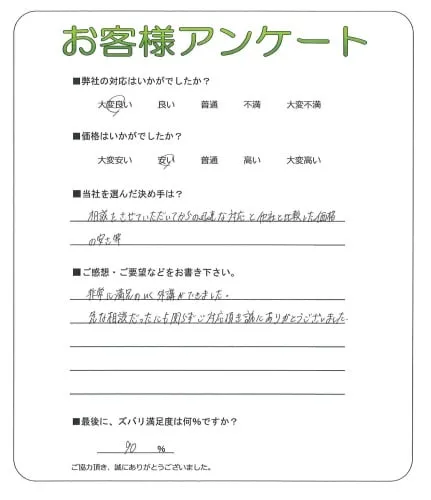 お客様アンケート
■弊社の対応はいかがでしたか？
大変良い 良い 普通 不満 大変不満
■価格はいかがでしたか？
大変安い 安い 普通 高い 大変高い
■当社を選んだ決め手は？
相談をさせていただいてからの迅速な対応と他社と比較した価格
の安さ等
■ご感想・ご要望などをお書き下さい。
非常に満足のいく保護ができました。
急な相談だったにも関らずご対応頂き誠にありがとうございました。
■最後に、ズバリ満足度は何％ですか？
90 ％
ご協力頂き、誠にありがとうございました。